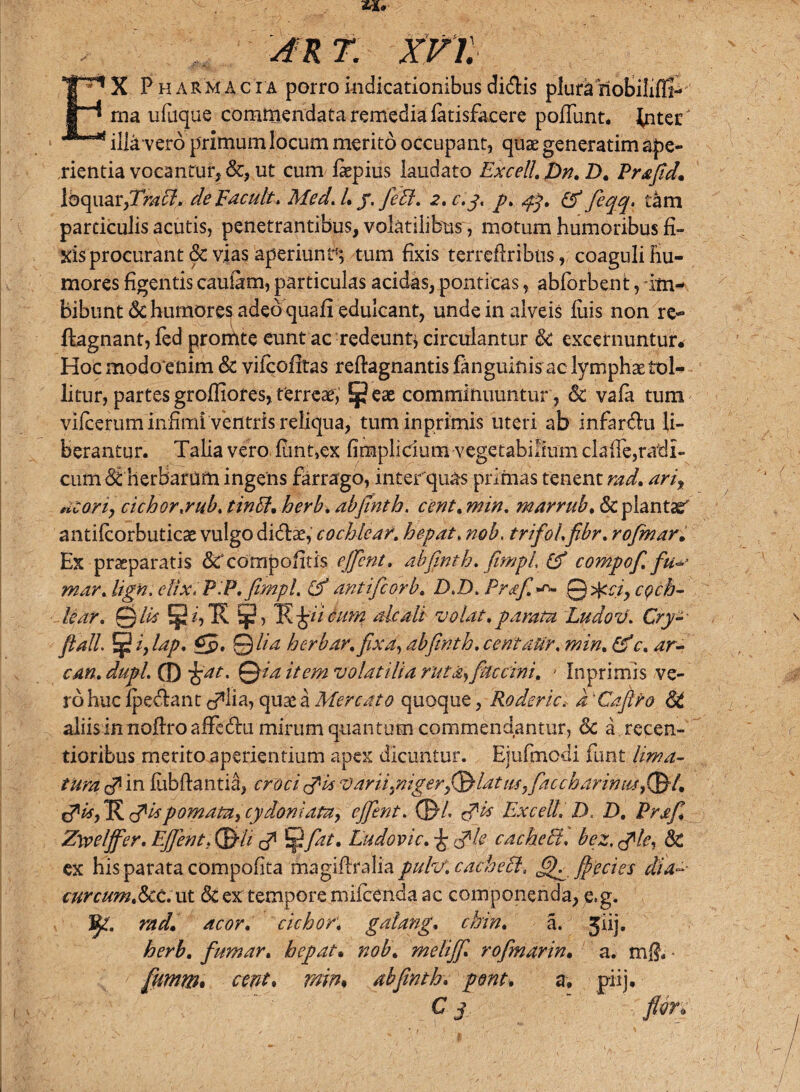 21.
ART. XVI.
EX PHARMACIA porro indicationibus dictis plura nobilissi-
ma usuque commendata remedia satisfacere possunt. Inter
illa vero primum locum merito occupant, quæ generatim ape-
rientia vocantur, &, ut cum sæpius laudato Excell. Dn. D. Præsid.
loquar, Tract. de Facult. Med. l. 5. sect. 2. c. 3. p. 43. & seqq. tàm
particulis acutis, penetrantibus, volatilibus, motum humoribus fi-
xis procurant & vias aperiunt; tum fixis terrestribus, coaguli hu-
mores figentis causam, particulas acidas, ponticas, absorbent, im-
bibunt & humores adeò quasi edulcant, unde in alveis suis non re-
stagnant, sed promte eunt ac redeunt, circulantur & excernuntur.
Hoc modo enim & viscositas restagnantis sanguinis ac lymphæ tol-
litur, partes grossiores, terreæ, 🜿eæ comminuuntur, & vasa tum
viscerum infimi ventris reliqua, tum inprimis uteri ab infarctu li-
berantur. Talia vero sunt, ex simplicium vegetabilium classe, radi-
cum & herbarum ingens farrago, inter quas primas tenent rad. ari,
acori, cichor. rub. tinct. herb. absinth. cent. min. marrub. & plantæ
antiscorbuticæ vulgo dictæ, cochlear. hepat. nob. trifol. fibr. rosmar.
Ex præparatis & compositis essent. absinth. simpl. & compos. fu-
mar. lign. elix. P.P. simpl. & antiscorb. D.D. Præs. 🜹✱ci, coch-
lear. 🜹lis 🜿i, ℞ 🜿, ℞ ♃ii cum alcali volat. parata Ludov. Cry-
stall. 🜿i, lap. ♋. 🜹lia herbar. fixa, absinth. centaur. min. &c. ar-
can. dupl. 🜕 ♃at. 🜹ia item volatilia rutæ, succini. Inprimis ve-
rò huc spectant ♂lia, quæ à Mercato quoque, Roderic. à Castro &
aliis in nostro affectu mirum quantum commendantur, & à recen-
tioribus merito aperientium apex dicuntur. Ejusmodi sunt lima-
tura ♂ in substantiâ, croci ♂is varii, niger, 🜖latus, saccharinus, 🜖l.
♂is, ℞ ♂is pomata, cydoniata, essent. 🜖l. ♂is Excell. D. D. Præs.
Zwelffer. Essent. 🜖li ♂ 🜿sat. Ludovic. ♃ ♂le cachect. bez. ♂le, &
ex his parata composita magistralia pulv. cachect. Q. species dia-
curcum. &c. ut & ex tempore miscenda ac componenda, e.g.
℞. rad. acor. cichor. galang. chin. ā. ʒiij.
herb. fumar. hepat. nob. meliss. rosmarin. a. mß.
summ. cent. min. absinth. pont. a. piij.
C 3 flor.